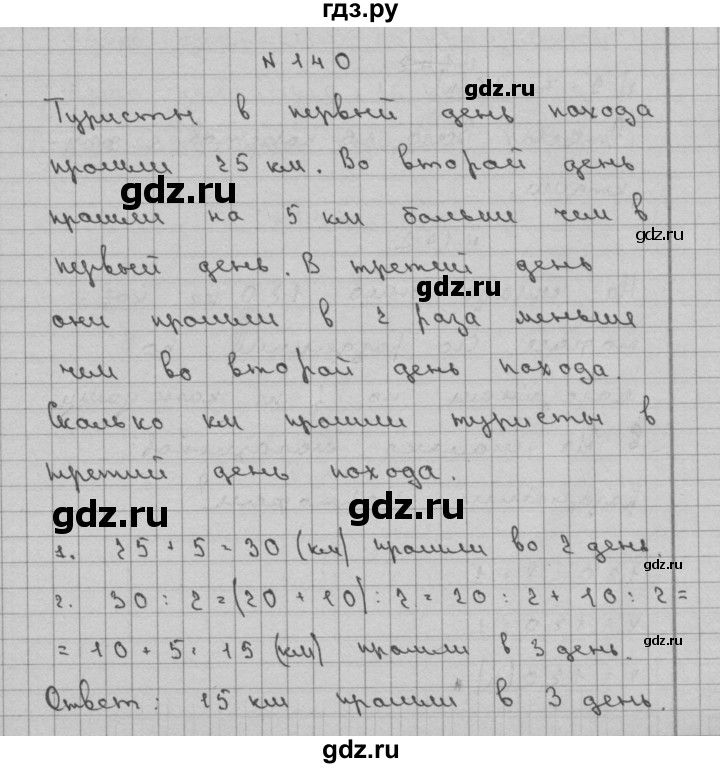 гдз.ру
N 140
gdz.ru
Туристы в первый день похода
прошли 25 км. Во второй день
gdz.ru
прошли на 5 км больше чем в
gdz.ru
первый день. В третий день
gdz.ru
они прошли в 2 раза меньше
чем во второй день похода.
Сколько км прошли туристы в
третий день похода.
gdz.ru gdz.ru
1. 25 + 5 = 30 (км) прошли во 2 день.
gdz.ru
2. 30 : 2 = (20 + 10) : 2 = 20 : 2 + 10 : 2 =
= 10 + 5 = 15 (км) прошли в 3 день.
gdz.ru
Ответ: 15 км прошли в 3 день.
gdz.ru